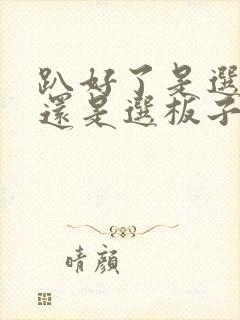 趴好了是選
還是選板子
晴顏